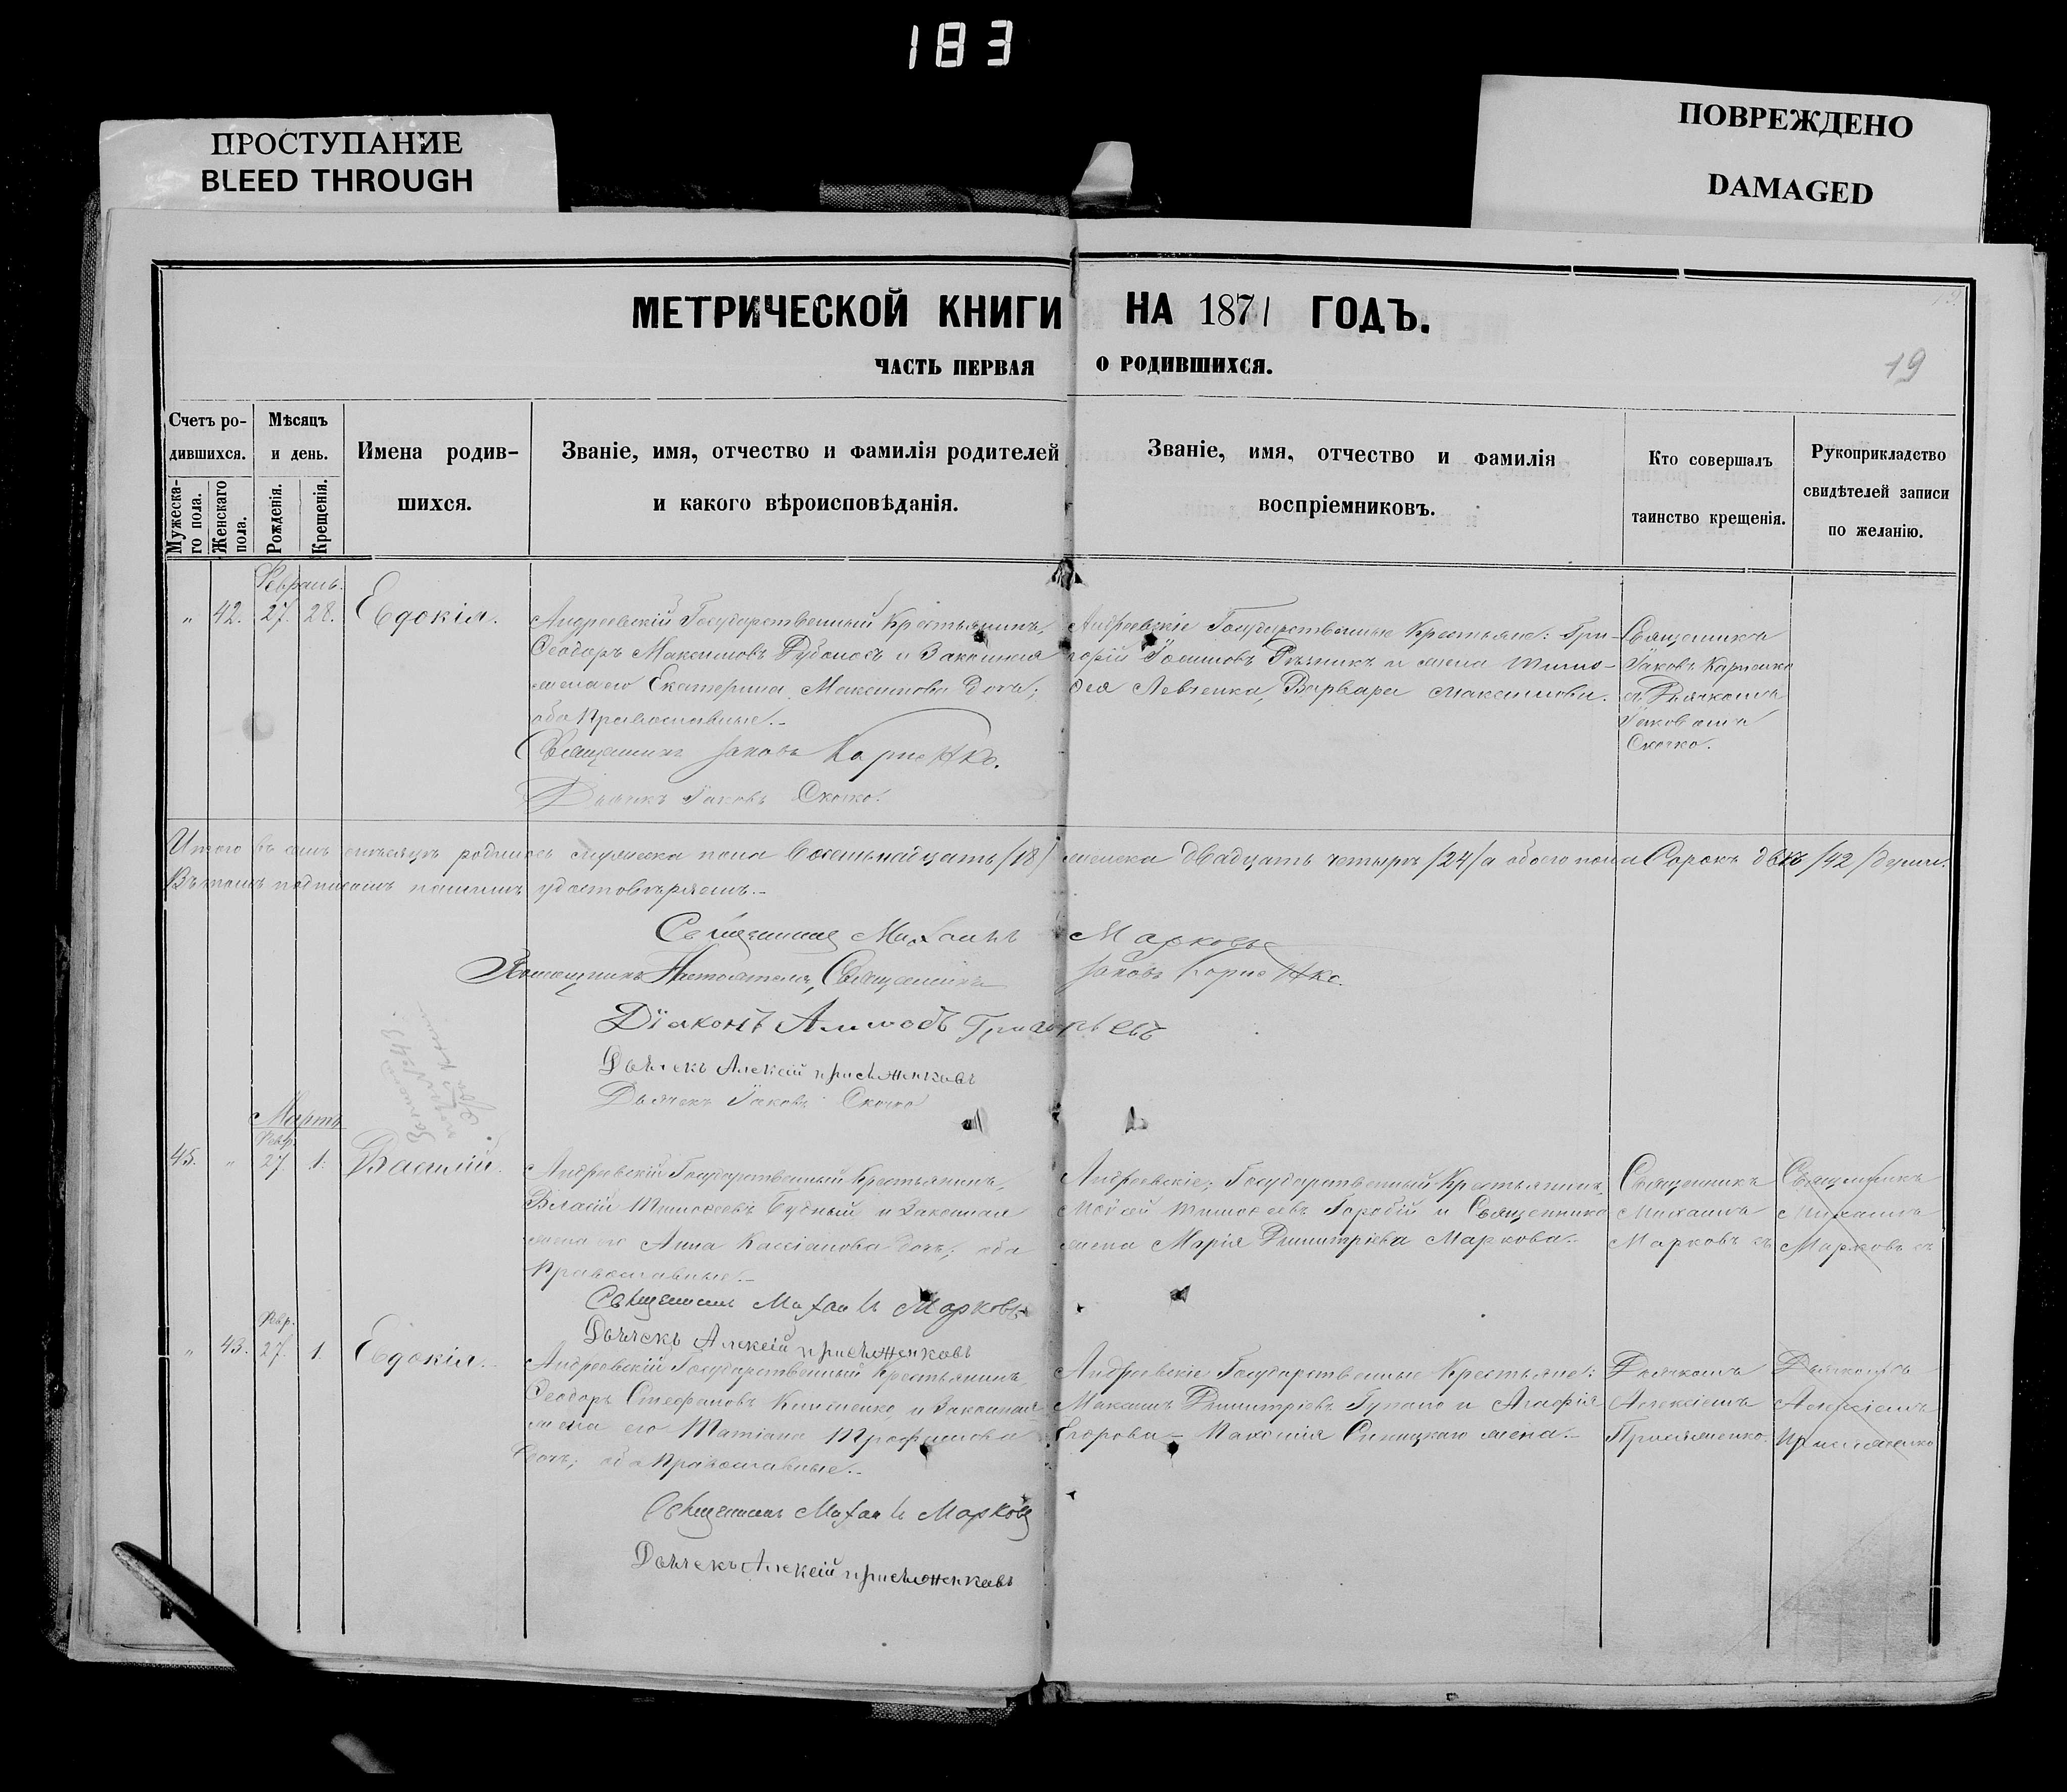 183
ПРОСТУПАНИЕ
BLEED THROUGH
ПОВРЕЖДЕНО
DAMAGED
МЕТРИЧЕСКОЙ КНИГИ НА 1871 ГОДЪ.
ЧАСТЬ ПЕРВАЯ О РОДИВШИХСЯ.
19
Счетъ ро-
дившихся.
Мужеска-
го пола.
Женскаго
пола.
Мѣсяцъ
и день.
Рожденія.
Крещенія.
Имена родив-
шихся.
Званіе, имя, отчество и фамилія родителей
и какого вѣроисповѣданія.
Званіе, имя, отчество и фамилія
воспріемниковъ.
Кто совершалъ
таинство крещенія.
Рукоприкладство
свидѣтелей записи
по желанію.
Февраль.
" 42. 27. 28. Евдокія.
Андреевскій Государственный Крестьянинъ,
Ѳеодоръ Максимовъ и Законная
жена его Екатерина Максимова дочь;
оба Православные.
Священникъ Іаковъ
Дьячекъ Іаковъ Скочко.
Андреевскіе Государственные Крестьяне: Гри-
горій и жена Тимо-
ѳея Левченка, Варвара Максимова.
Священникъ
Іаковъ
съ Дьячкомъ
Іаковомъ
Скочко.
Итого въ семъ мѣсяцѣ родилось мужеска пола Восемьнадцать /18/ женска двадцать четыре /24/ а обоего пола Сорокъ двѣ /42/ души.
Въ томъ подписомъ нашимъ удостовѣряемъ.
Священникъ Михаилъ Марковъ
Помощникъ Настоятеля, Священникъ Іаковъ
Діаконъ
Дьячекъ Алексій
Дьячекъ Іаковъ Скочко
Мартъ
Февр.
45. " 27. 1. Василій.
Андреевскій Государственный Крестьянинъ,
Власій Тимоѳеевъ Будный и Законная
жена его Анна Кассіанова дочь; оба
Православные.
Священникъ Михаилъ Марковъ
Дьячекъ Алексій
Андреевскіе; Государственный Крестьянинъ,
Мойсей Тимоѳеевъ Горобій и Священника
жена Марія Димитріева Маркова.
Священникъ
Михаилъ
Марковъ съ
Священникъ
Михаилъ
Марковъ съ
Февр.
" 43. 27. 1. Евдокія.
Андреевскій Государственный Крестьянинъ,
Ѳеодоръ Стефановъ и Законная
жена его Татіана Трофимова
дочь; оба Православные.
Священникъ Михаилъ Марковъ
Дьячекъ Алексій
Андреевскіе Государственные Крестьяне:
Максимъ Димитріевъ и Агафія
Егорова Синицкаго жена.
Дьячкомъ
Алексіемъ
Дьячкомъ
Алексіемъ